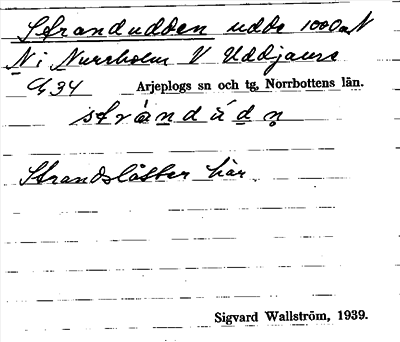 Strandudden udde 1000 m N
N i Nurrholm V Uddjaure
Arjeplogs sn och tg, Norrbottens län.
strand
Strandslåtter här.
Sigvard Wallström, 1939.